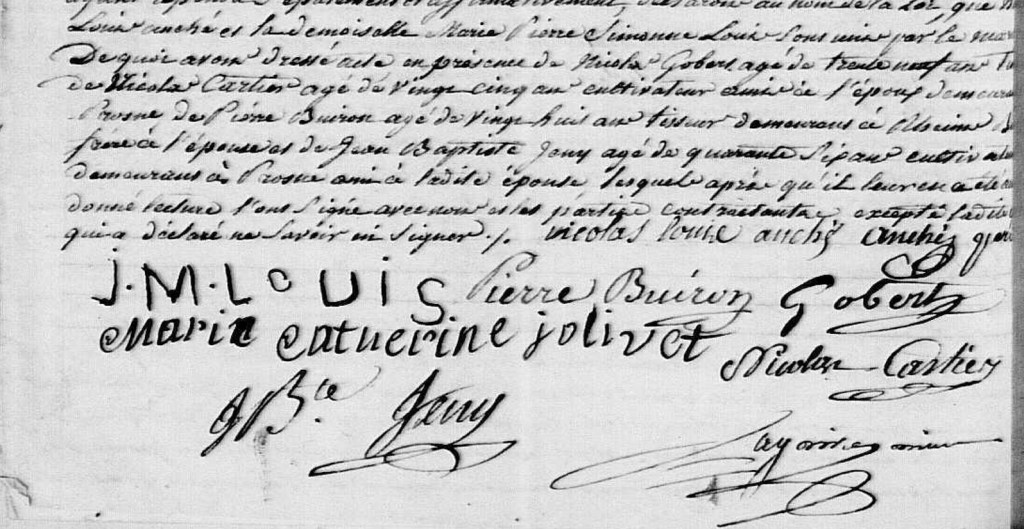 et affirmativement, declarons au nom de la Loi, que
Louis anché et la demoiselle Marie Pierre Simonne Louis sont unis par le mar
De quoi avons dressé acte en présence de Nicolas Gobert agé de trente neuf ans
de Nicolas Cartier agé de vingt cinq ans cultivateur amis à l'époux demeurans
Prosne de Pierre Buiron agé de vingt huit ans tisseur demeurans à Rheims
frère à l'épouse et de Jean Baptiste Jeny agé de quarante six ans cultivat
demeurans à Prosne ami à ladite épouse lesquels après qu'il leur en a été
donné lecture l'ont signé avec nous et les parties contractantes excepté ladi
qui a déclaré ne savoir ni signer ./. nicolas louis anché anché
J.M.LoUIS Pierre Buiron Gobert
Marie catherine jolivet
Nicolas Cartier
JBte Jeny